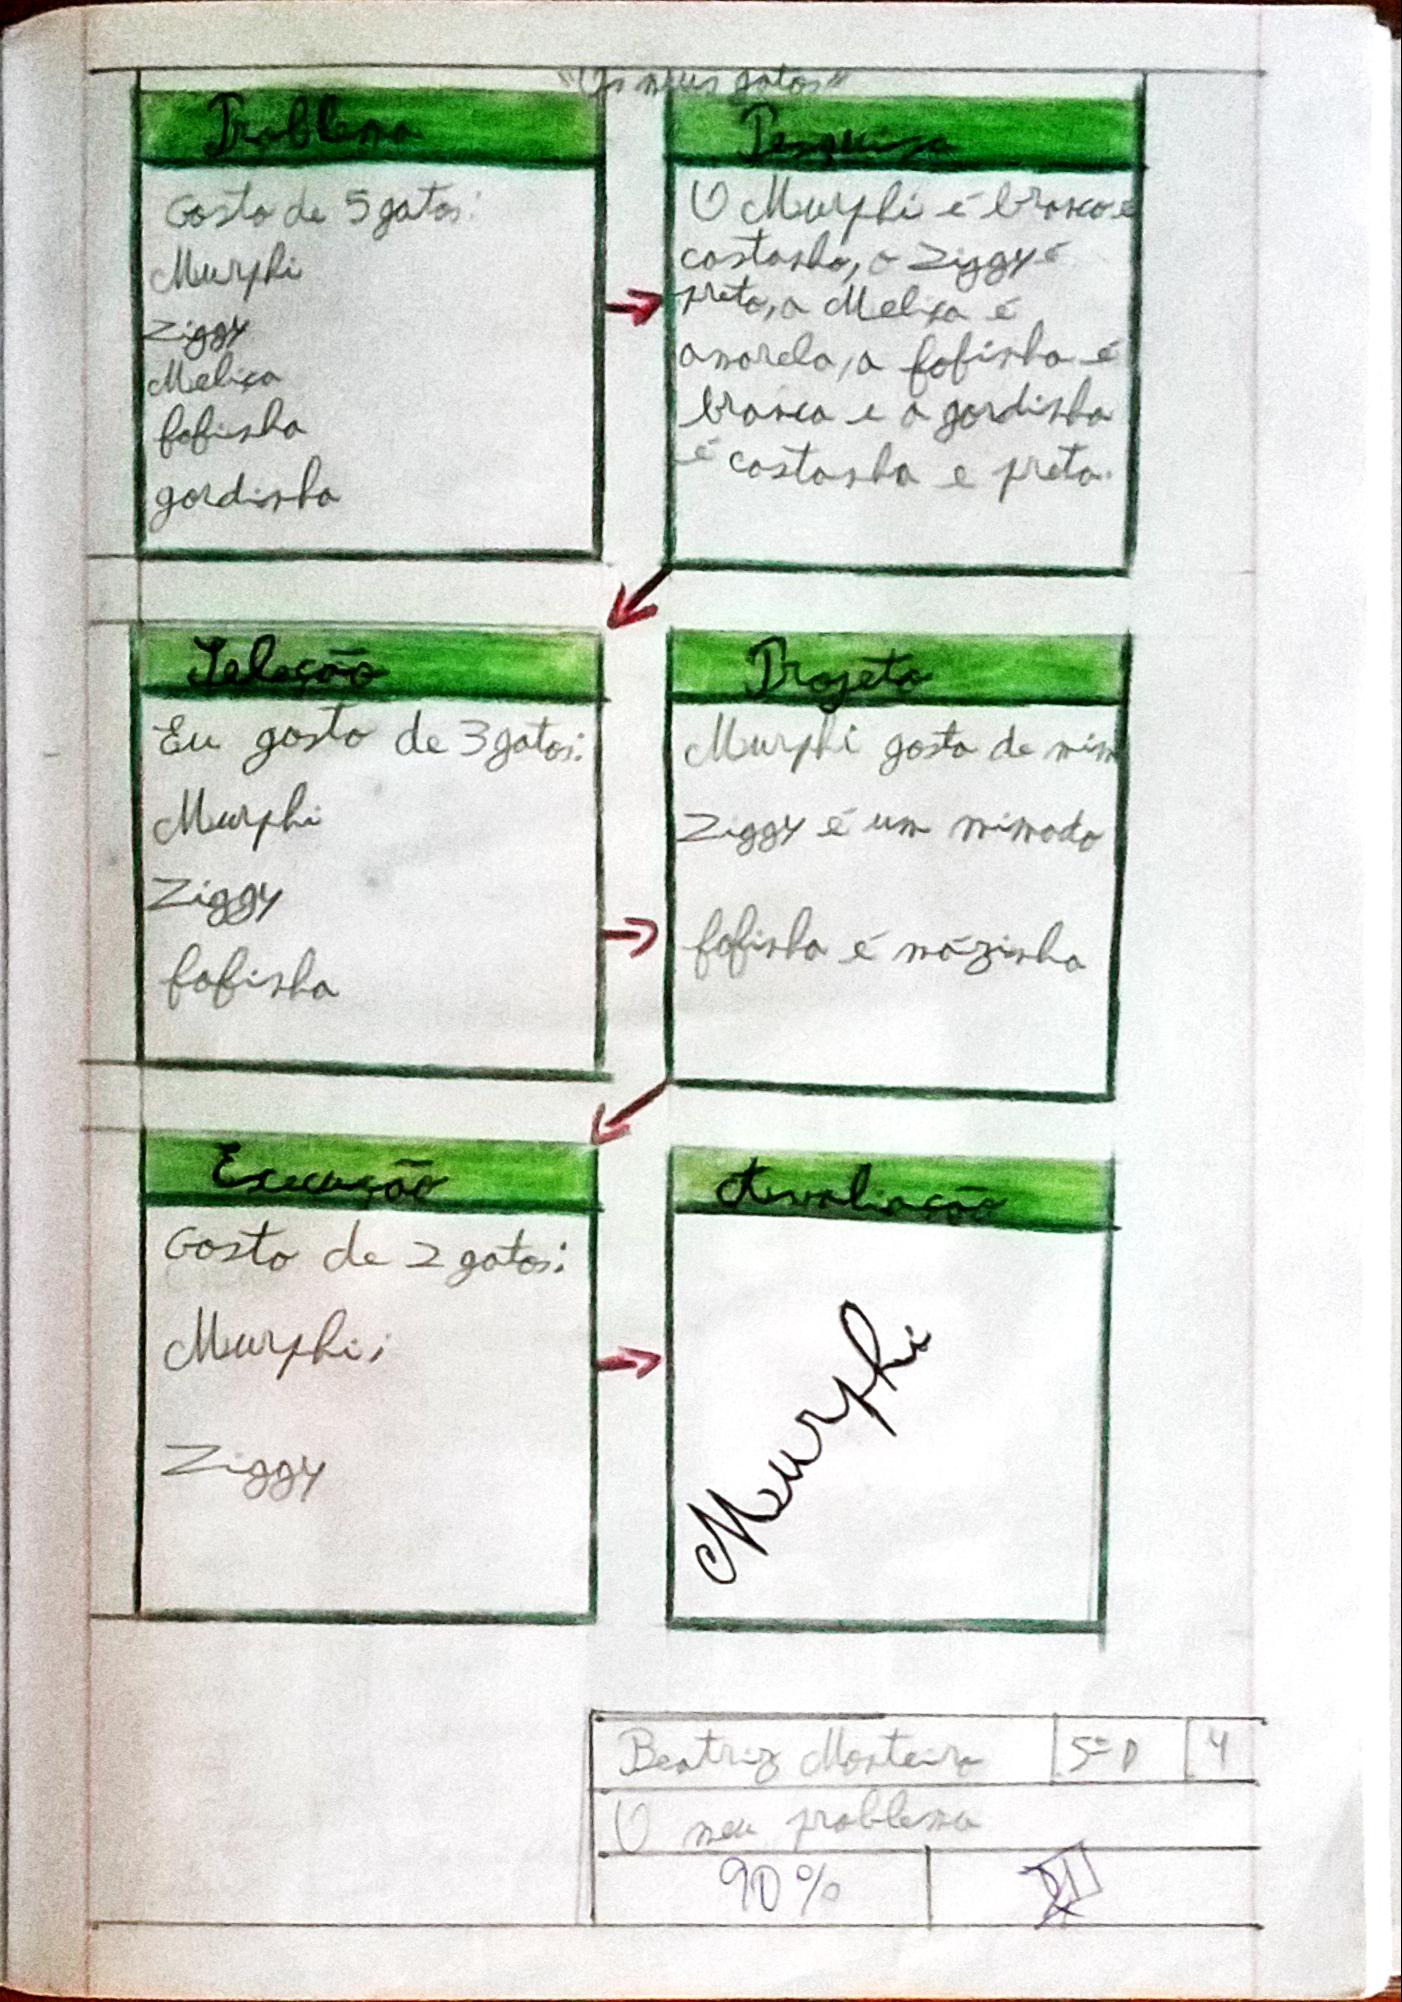 "Os meus gatos"
Problema
Gosto de 5 gatos:
Murphi
Ziggy
Melissa
fofinha
gordinha
Pesquisa
O Murphi é branco e
castanho, o Ziggy é
preto, a Melissa é
amarela, a fofinha é
branca e a gordinha
é castanha e preta.
Seleção
Eu gosto de 3 gatos:
Murphi
Ziggy
fofinha
Projeto
Murphi gosta de mim
Ziggy é um mimado
fofinha é mázinha
Execução
Gosto de 2 gatos:
Murphi;
Ziggy
Avaliação
Murphi
Beatriz Monteiro 5º D 4
O meu problema
90%